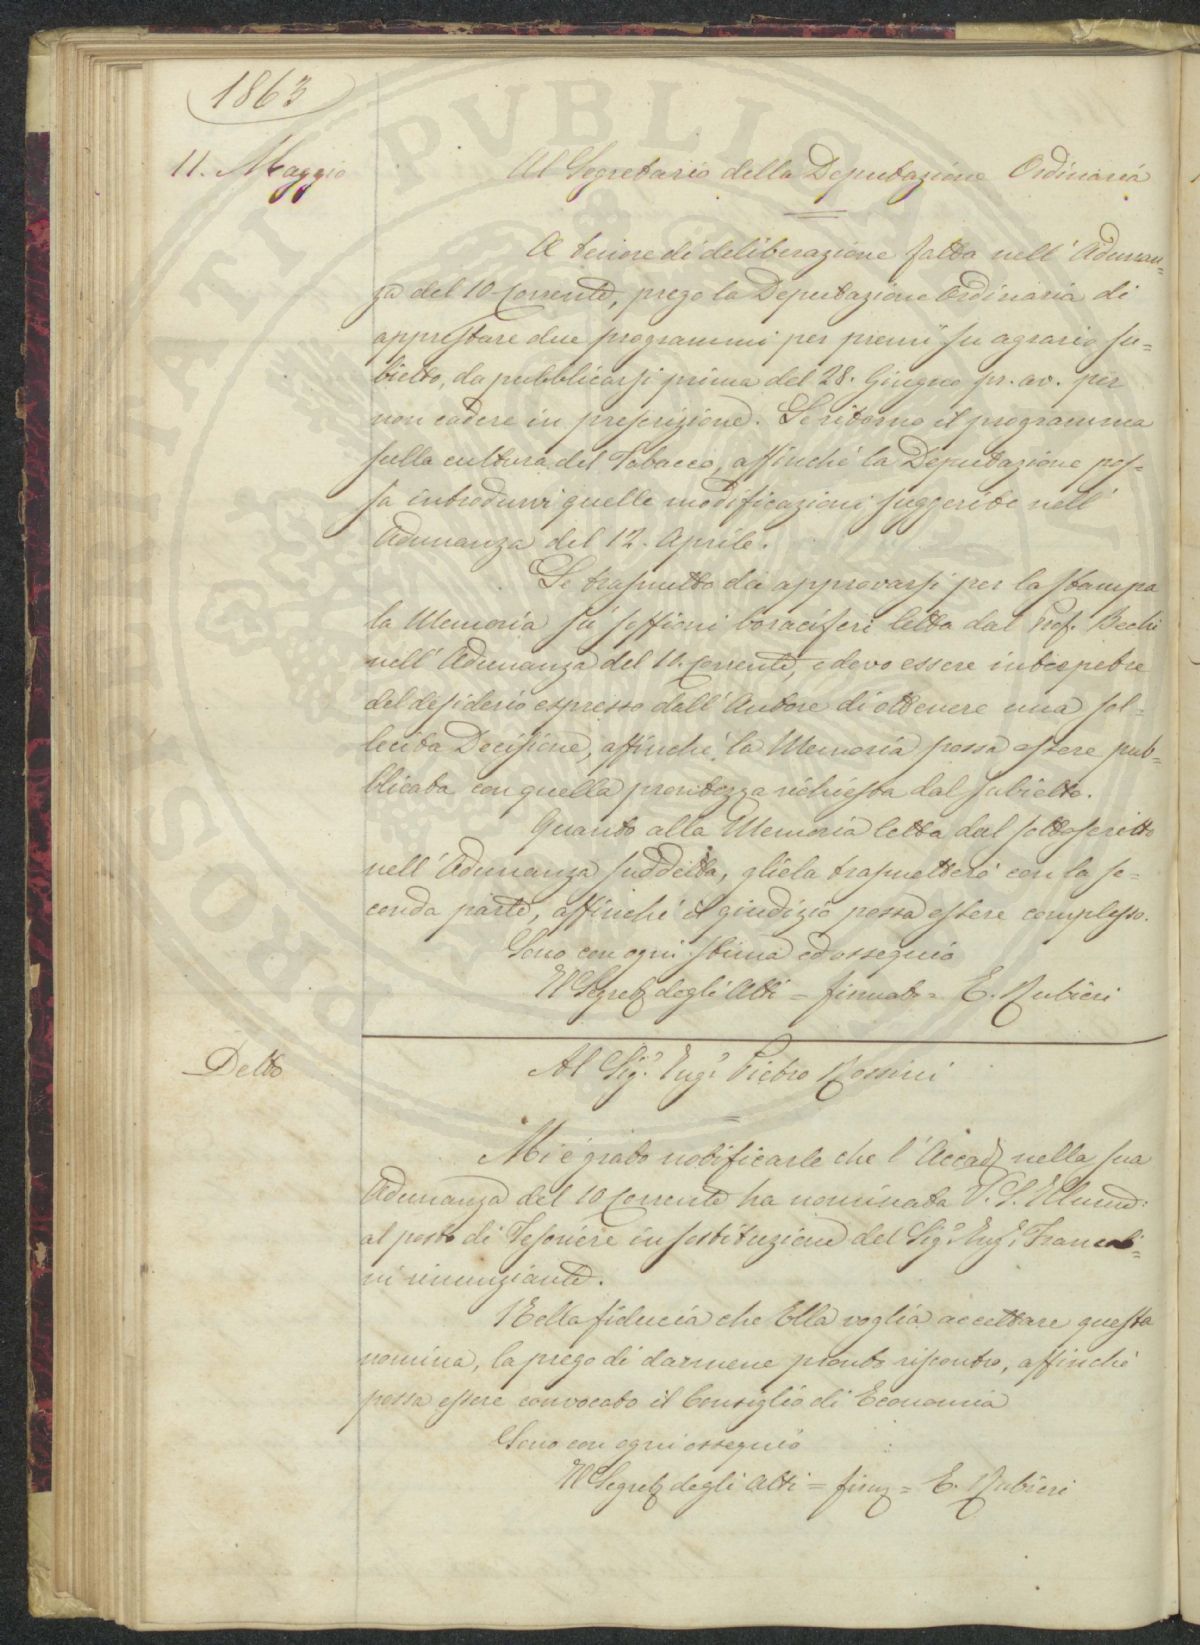 1863
11. Maggio
Al Segretario della Deputazione Ordinaria
A tenore di deliberazione fatta nell' Adunan=
za del 10 Corrente, prego la Deputazione Ordinaria di
apprestare due programmi per premii su agrario su=
bietto, da pubblicarsi prima del 28. Giugno pr. av. per
non cadere in prescrizione. Le ritorno il programma
sulla cultura del Tabacco, affinché la Deputazione pos=
sa introdurvi quelle modificazioni suggerite nell'
Adunanza del 12. Aprile.
Le trasmetto da approvarsi per la stampa
la Memoria su' soffioni boraciferi letta dal Prof. Bechi
nell' Adunanza del 10. Corrente, e devo essere interpetre
del desiderio espresso dall' Autore di ottenere una sol=
lecita Decisione, affinché la Memoria possa essere pub=
blicata con quella prontezza richiesta dal subietto.
Quanto alla Memoria letta dal sottoscritto
nell' Adunanza suddetta, gliela trasmetterò con la se=
conda parte, affinché il giudizio possa essere complesso.
Sono con ogni stima ed ossequio
Il Segret degli Atti = firmato = E. Rubieri
Detto
Al Sig.e Ing.e Pietro Rossini
Mi è grato notificarle che l' Accad nella sua
Adunanza del 10 Corrente ha nominata V. S. Illumd:
al posto di Tesoriere in sostituzione del Sig.e Ing.e Francoli=
ni rinunziante.
Nella fiducia che Ella voglia accettare questa
nomina, la prego di darmene pronto riscontro, affinché
possa essere convocato il Consiglio di Economia
Sono con ogni ossequio
Il Segret degli Atti = firm = E. Rubieri